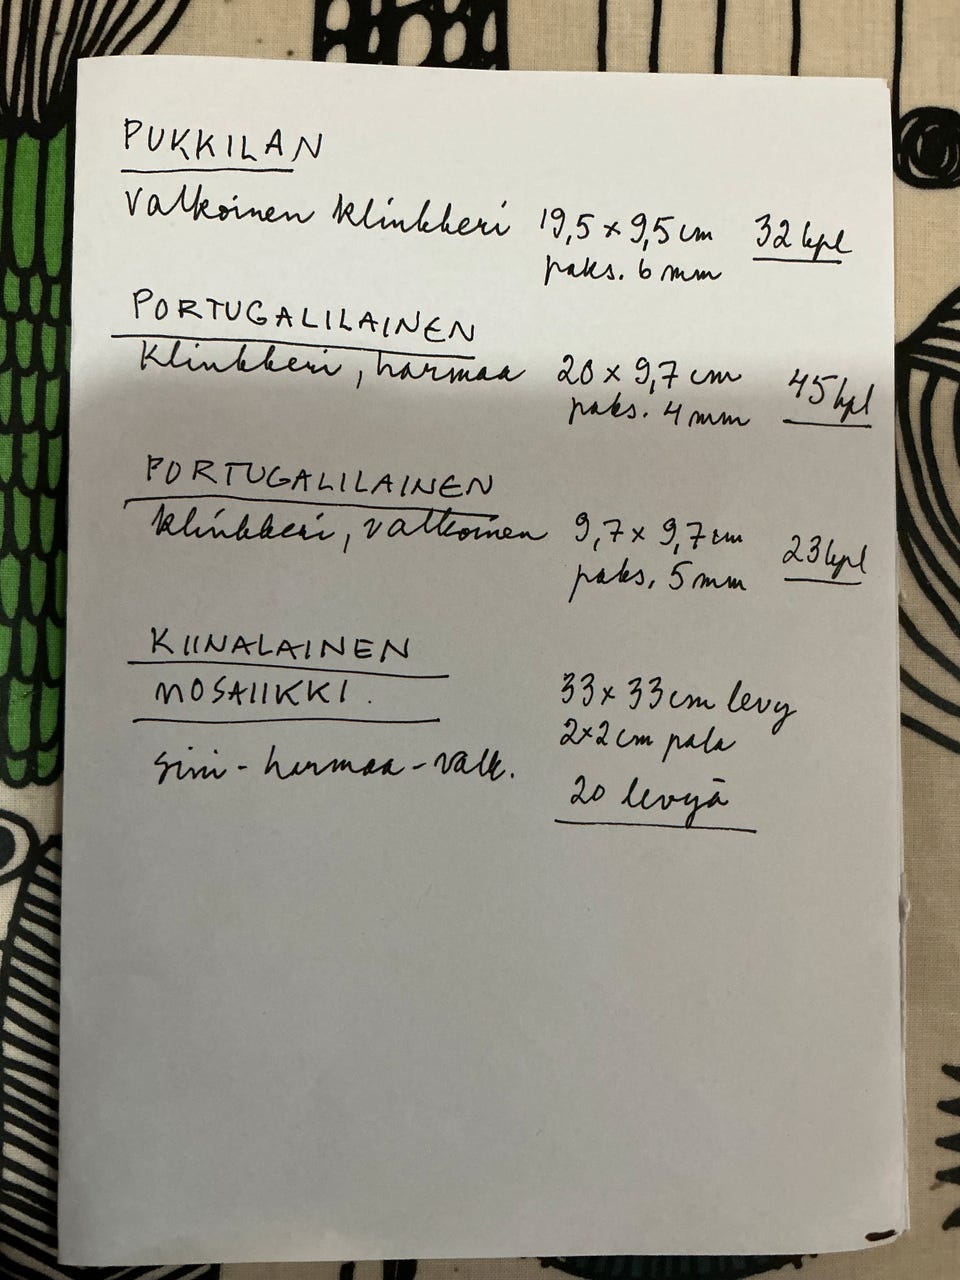 PUKKILAN
Valkoinen klinkkeri 19,5 x 9,5 cm 32 kpl
paks. 6 mm
PORTUGALILAINEN
klinkkeri, harmaa 20 x 9,7 cm 45 kpl
paks. 4 mm
PORTUGALILAINEN
klinkkeri, valkoinen 9,7 x 9,7 cm 23 kpl
paks. 5 mm
KIINALAINEN
MOSAIIKKI. 33 x 33 cm levy
2x2 cm pala
sini-harmaa-valk.
20 levyä